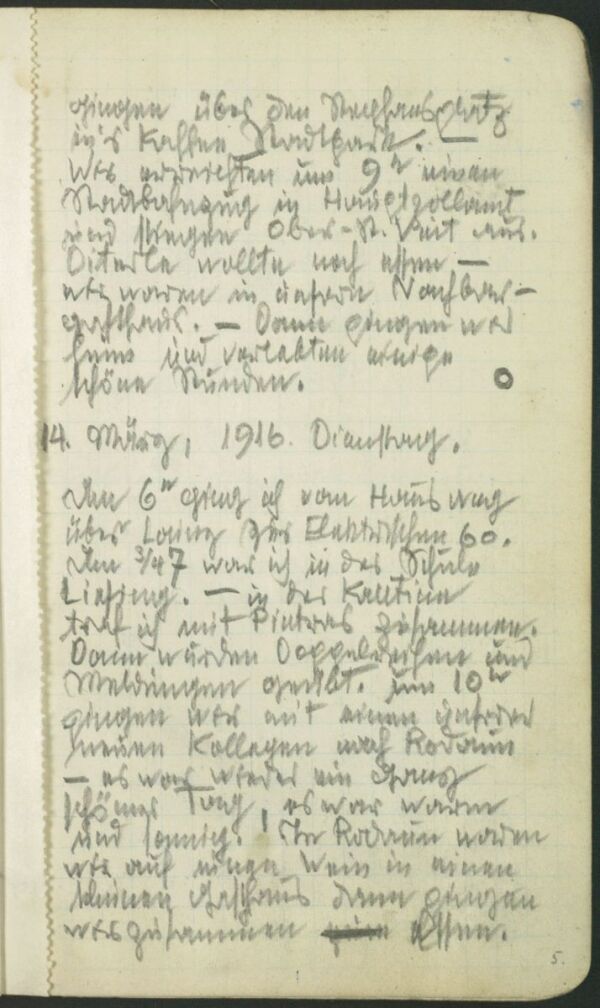 gingen über den Stephansplatz
in's Kaffee Stadtpark. —
Wir erreichten um 9ʰ einen
Stadtbahnzug in Hauptzollamt
und stiegen Ober-St. Veit aus.
Diterle wollte noch essen —
wir waren in unsern Nachbar-
gasthaus. — Dann gingen wir
heim und verlebten einige
schöne Stunden.
14. März, 1916. Dienstag.
Um 6ʰ ging ich vom Haus weg
über Lainz zur Elektrischen 60.
Um ¾7 war ich in der Schule
Liesing. — in der Kantine
traf ich mit Pinteras zusammen.
Dann wurden Doppelreihen und
Meldungen geübt. Um 10ʰ
gingen wir mit einen unserer
neuen Kollegen nach Rodaun
— es war wieder ein ganz
schöner Tag, es war warm
und sonnig. In Rodaun waren
wir auf einen Wein in einen
kleinen Gasthaus dann gingen
wir zusammen essen.
5.